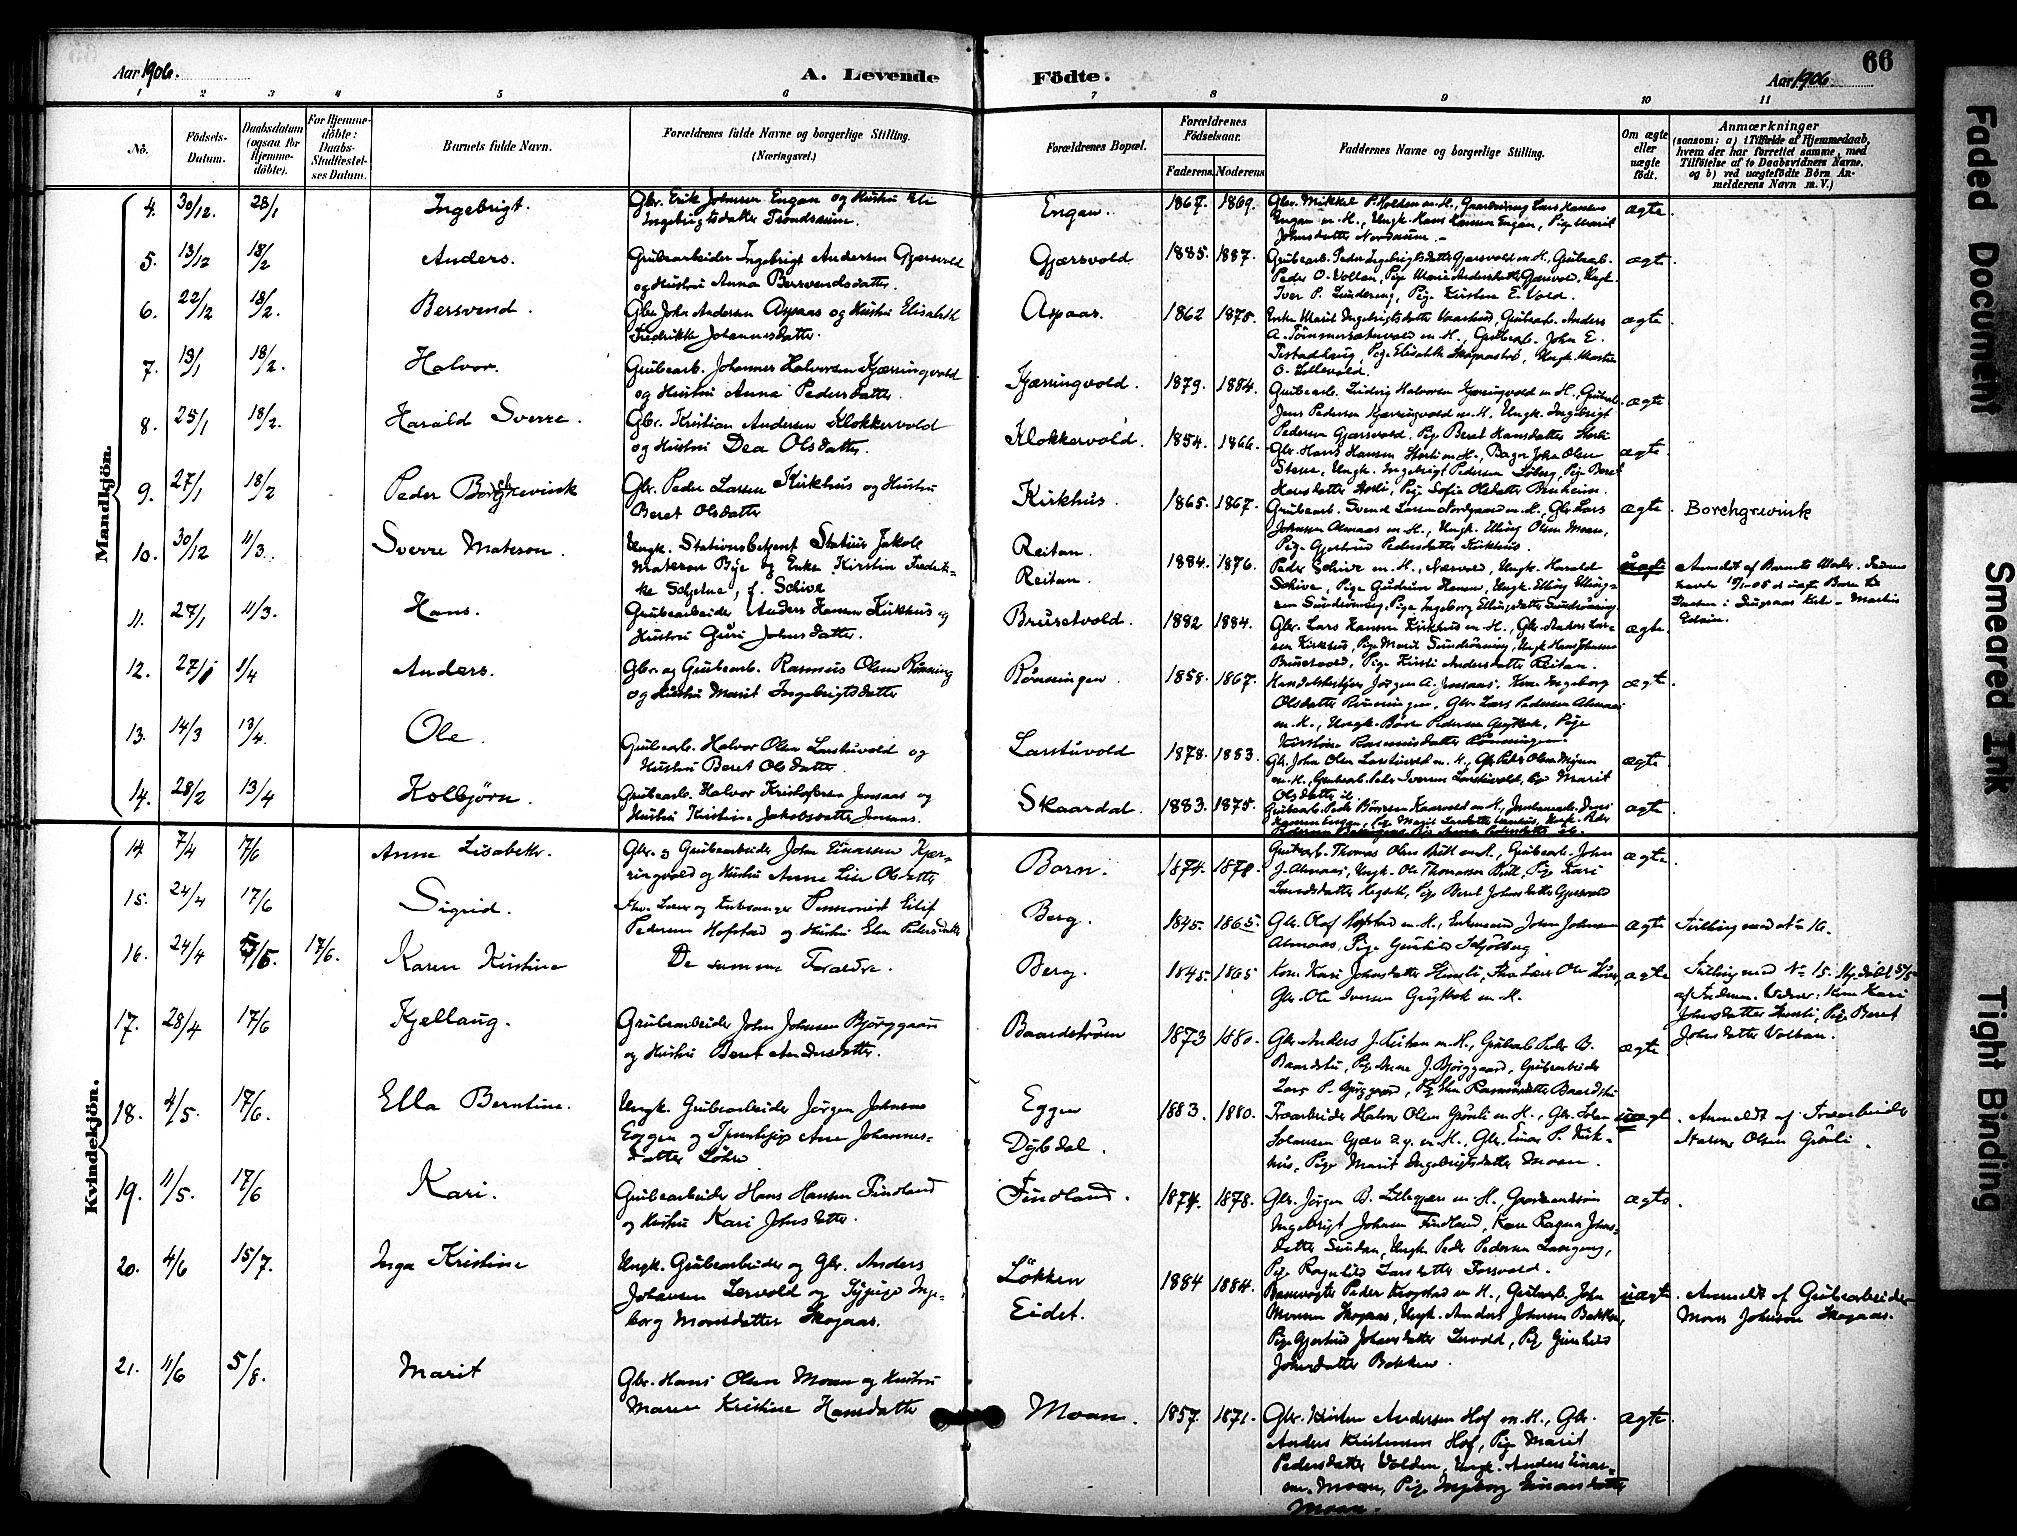 Aar 1906.
A. Levende
Födte.
Aar 1906.
66
1 2 3 4 5 6 7 8 9 10 11
No.
Födsels-
Datum.
Daabsdatum
(ogsaa for
Hjemme-
döbte).
For Hjemme-
döbte:
Daabs-
Stadfæstel-
ses Datum.
Barnets fulde Navn.
Forældrenes fulde Navne og borgerlige Stilling.
(Næringsvei.)
Forældrenes Bopæl.
Forældrenes
Födselsaar.
Faderens Moderens
Faddernes Navne og borgerlige Stilling.
Om ægte
eller
uægte
födt.
Anmærkninger
(saasom: a) i Tilfælde af Hjemmedaab,
hvem der har forrettet samme, med
Tilföielse af to Daabsvidners Navne,
og b) ved uægtefödte Börn An-
melderens Navn m. V.)
Mandkjön.
4. 30/12. 28/1 Ingebrigt.
Gbr. Erik Johnsen Engan og Hustru Eli
Ingebrigtsdatter
Engan. 1867. 1869.
Engan m. H., Ungk. Hans Hansen Engan, Pige Marit
Johnsdatter
ægte
5. 13/12 18/2 Anders.
Grubearbeider Ingebrigt Andersen Gjærsvold
og Hustru Anna Bersvendsdatter.
Gjærsvold 1885. 1887.
Grubearb. Peder Ingebrigtsdatter Gjærsvold m. H., Grubearb.
Peder O. Vollan, Pige Marie Andersdatter Gjærsvold, Ungk.
Iver P. Lundereng, Pige Kirsten E. Vold.
ægte
6. 22/12 18/2. Bersvend.
Gbr. John Andersen Aspaas og Hustru Elisabeth
Fredrikke Johannesdatter.
Aspaas. 1862 1875.
Enke Marit Ingebrigtsdatter
Grubearb. Anders
O. Lillevold.
ægte
7. 13/1 18/2. Halvor.
Grubearb. Johannes Halvorsen Kjærringvold
og Hustru Anna Pedersdatter.
Kjærringvold. 1879. 1884.
Grubearb. Ludvig Halvorsen Kjærringvold m. H., Grubearb.
Jens Pedersen Kjærringvold m. H. Ungk. Ingebrigt
Pedersen Gjærsvold. Pige Beret Hansdatter Storli
ægte.
8. 25/1 18/2. Harald Sverre.
Gbr. Kristian Andersen Klokkervold
og Hustru Dea Olsdatter.
Klokkervold. 1854. 1866.
Gbr. Hans Hansen Storli m. H., Bager John Olsen
Ungk. Ingebrigt Pedersen Pige Beret
Hansdatter Storli, Pige Sofie Olsdatter
ægte.
9. 27/1 18/2 Peder Borchgrevink
Gbr. Peder Larsen Kirkhus og Hustru
Beret Olsdatter
Kirkhus. 1865. 1867.
Grubearb. Svend Larsen Nordgaard m. H., Gbr. Lars
Johnsen Almaas m. H., Ungk. Elling Olsen Moan,
Pige Gjertrud Pedersdatter Kirkhus.
ægte. Borchgrevink
10. 30/12 11/3. Sverre Mateson.
Ungk. Stationsbetjent Statius Jakob
Mateson Bye og Enke Kirstin Fredrik-
ke f. Schive
Reitan.
Reitan. 1884. 1876.
Peder Schive m. H., Ungk. Harald
Schive, Pige Gudrun Hansen, Ungk. Elling Elling-
sen Sundrönning, Pige Ingeborg Ellingsdatter Sundrönning
uægte
Anmeldt af Barnets Moder.
11. 27/1 11/3. Hans.
Grubearbeider Anders Hansen Kirkhus og
Hustru Guri Johnsdatter.
Brurstvold. 1882 1884.
Gbr. Lars Hansen Kirkhus m. H., Gbr. Anders Lar-
sen Kirkhus, Pige Marit Sundrönning, Ungk. Hans Johnsen
Pige Kirsti Andersdatter Reitan.
ægte.
12. 27/1 1/4 Anders.
Gbr. og Grubearb. Rasmus Olsen Rönning
og Hustru Marit Ingebrigtsdatter
Rönningen. 1858. 1867.
Handelsbestyrer Jörgen A. Jensaas, Kone Ingeborg
Olsdatter Rönningen, Gbr. Lars Pedersen Almaas
m. H., Ungk. Pedersen Grytbak, Pige
Kirstine Rasmusdatter Rönningen.
ægte.
13. 14/3 13/4. Ole.
Grubearb. Halvor Olsen Larstuvold og
Hustru Beret Olsdatter.
Larstuvold 1878. 1883.
Gbr. John Olsen Larstuvold m. H., Gbr. Peder Olsen
m. H., Grubearb. Peder Iversen Larstuvold, Pige Marit
Olsdatter
ægte.
14. 28/2 13/4 Kolbjörn.
Grubearb. Halvor Kristofersen Jensaas og
Hustru Kristine Jakobsdatter Jensaas.
Skaardal. 1883. 1875.
ægte
Kvindekjön.
14 7/4 17/6 Anne Lisabeth.
Gbr. og Grubearbeider John Einarsen Kjær-
ringvold og Hustru Anne Lise Olsdatter
Born. 1874. 1878.
Grubearb. Thomas Olsen Bütl m. H., Grubearb. John
J. Almaas, Ungk. Ole Thomassen Bütl, Pige Kari
Pige Beret Johnsdatter Gjersvold
ægte.
15. 24/4 17/6 Sigrid.
Fhv. Lærer og Kirkesanger Pensionist Eilif
Pedersen Hofstad og Hustru Elen Pedersdatter
Berg. 1845. 1865.
Gbr. Olaf Hofstad m. H., Enkemand John Johnsen
Almaas, Pige Gunhild
ægte Tvilling med No 16.
16. 24/4 5/5. 17/6. Karen Kirstine
De samme Forældre.
Berg. 1845. 1865
Kone Kari Johnsdatter Storli, Fhv. Lærer Ole
Gbr. Ole Iversen Grytbak m. H.
ægte Tvilling med No 15. Hj. döbt 5/5
af Faderen. Vidner: Kone Kari
Johnsdatter Storli, Pige Beret
Johnsdatter Vollan.
17. 28/4 17/6 Kjellaug.
Grubearbeider John Johnsen Bjørggaard
og Hustru Beret Andersdatter.
Baardstrøm 1873 1880.
Gbr. Anders J. Reitan m. H., Grubearb. Peder B.
Baardstu, Pige J. Bjørggaard, Grubearbeider
Lars P. Bjørggaard, Pige Elen Rasmusdatter Baardstu
ægte
18. 4/5. 17/6. Ella Berntine.
Ungk. Grubearbeider Jörgen Johnsen
Eggen og Ane Johannes-
datter Löhre
Eggen
Dybdal. 1883. 1880.
Træarbeider Halvor Olsen Grönli m. H., Gbr. John
m. H., Gbr. Einar P. Kirk-
hus, Pige Marit Ingebrigtsdatter Moan.
uægt. Anmeldt af Træarbeider
Halvor Olsen Grönli.
19. 11/5. 17/6 Kari.
Grubearbeider Hans Hansen Findland
og Hustru Kari Johnsdatter.
Findland. 1874. 1878.
Gbr. Jörgen B. Lillegjære m. H.
Ingebrigt Johnsen Findland, Kone Ragna Johns-
datter Ungk. Peder Pedersen Langeng,
Pige Ragnhild Larsdatter Forsvold.
ægte.
20. 4/6 15/7. Inga Kristine
Ungk. Grubearbeider og Gbr. Anders
Johansen Lervold og Sypige Inge-
borg Monsdatter Skogaas.
Løkken
Eidet. 1884 1884.
Banevogter Peder Krogstad m. H., Grubearb. John
Monsen Skogaas, Ungk. Anders Johnsen Bakken,
Pige Gjertrud Johansdatter Lervold, Pige Gunhild
Johnsdatter Bakken.
uægt. Anmeldt af Grubearbeider
Mons Johnson Skogaas.
21. 11/6 5/8. Marit
Gbr. Hans Olsen Moan og Hustru
Maren Kristine Hansdatter
Moan. 1857. 1871.
Gbr. Kristen Andersen Hof m. H., Gbr.
Anders Kristensen Hof, Pige Marit
Pedersdatter Volden, Ungk. Anders Einar-
sen Moan, Pige Ingeborg Einarsdatter
Moan.
Faded Document
Smeared Ink
Tight Binding